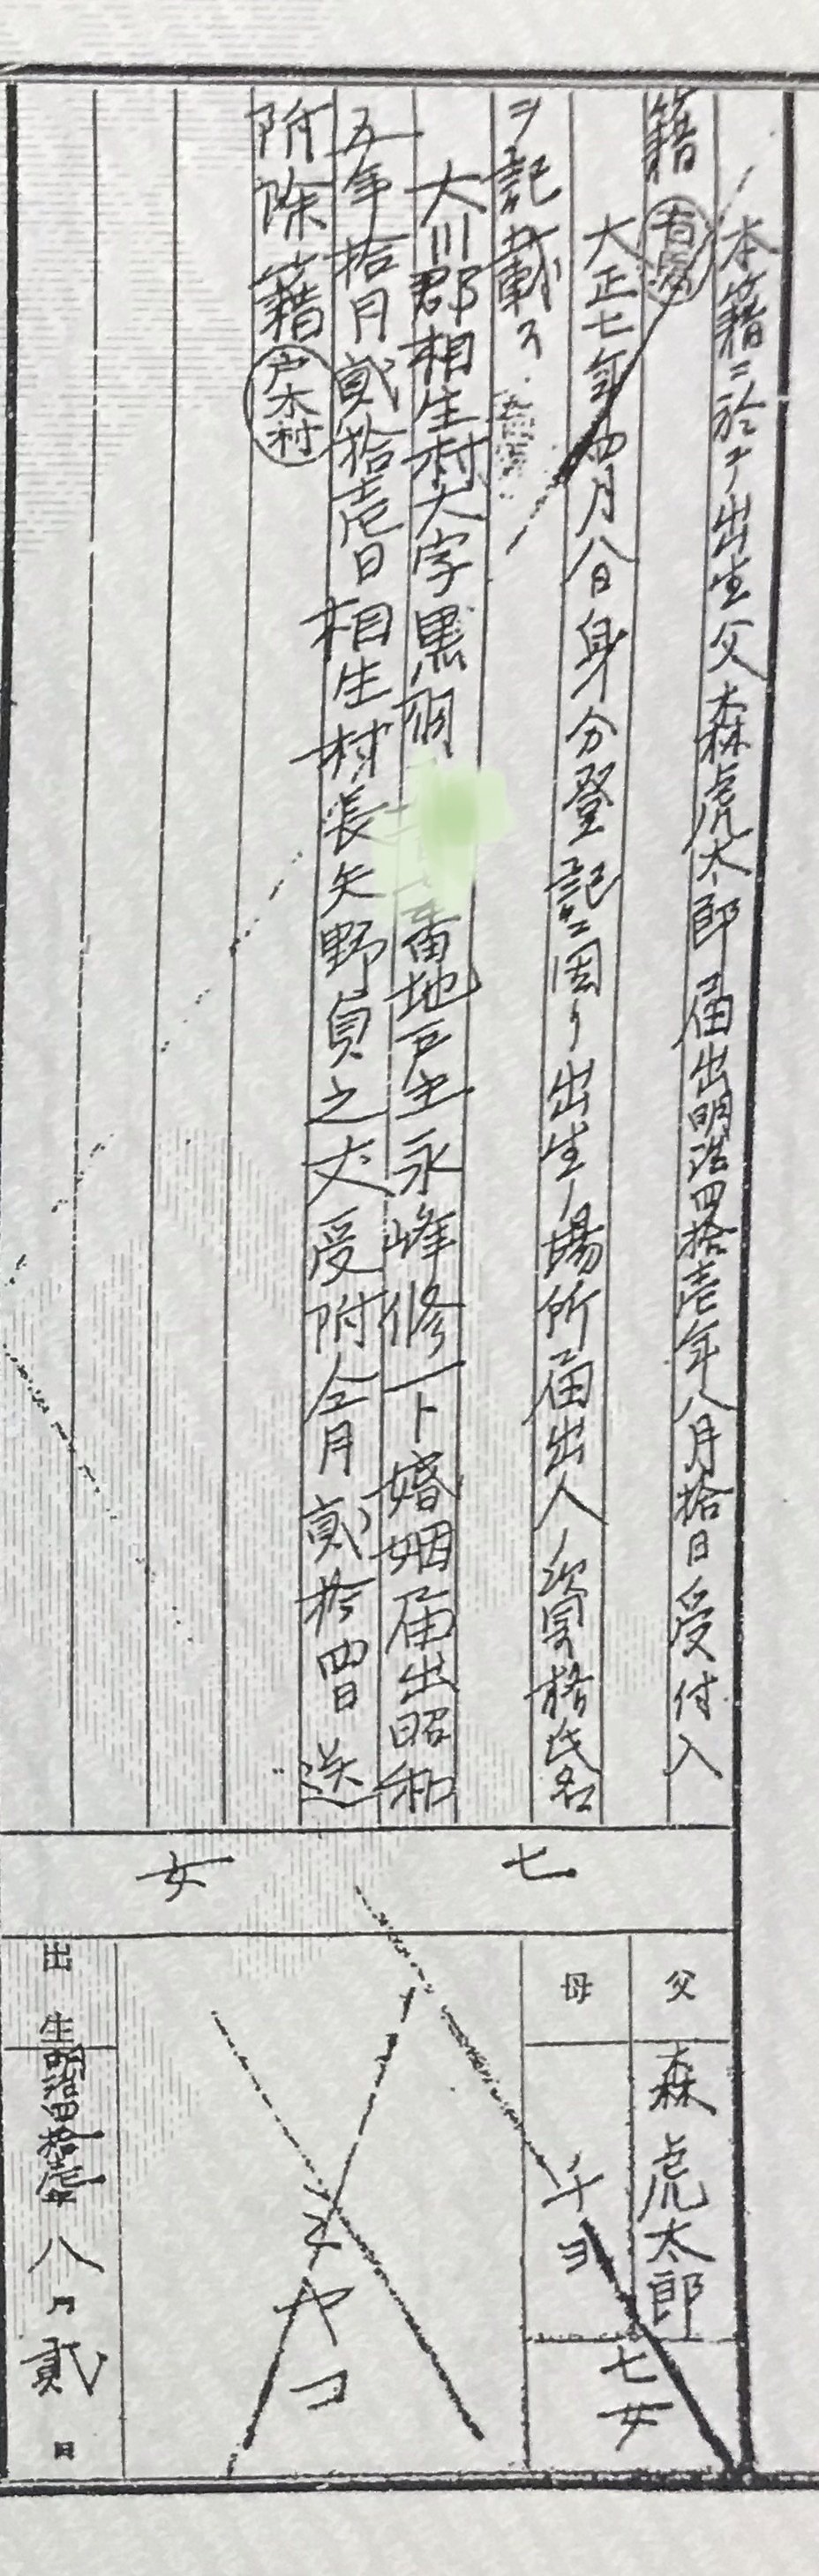 本籍ニ於テ出生父森虎太郎届出明治四拾壱年八月拾日受付入
籍
大正七年四月八日身分登記ニ因リ出生ノ場所届出人ノ資格氏名
ヲ記載ス
大川郡相生村大字黒羽 番地戸主永峰修一ト婚姻届出昭和
五年拾月貳拾壱日相生村長矢野貞之丈受附仝月貳拾四日送
附除籍
戸木村
七女
父 森虎太郎
母 千ヨ
七女
ミヤコ
出生 明治四拾壱年八月貳日